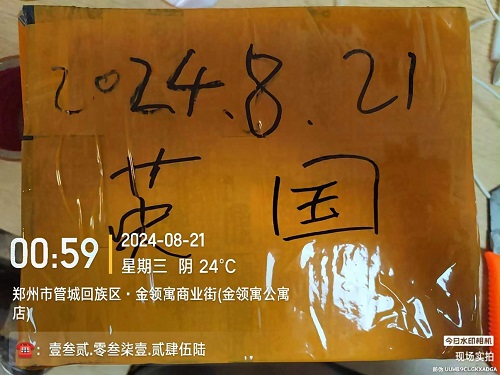 2024.8.21
英 国
00:59
2024-08-21
星期三 阴 24°C
郑州市管城回族区·金领寓商业街(金领寓公寓
店)
：壹叁贰.零叁柒壹.贰肆伍陆
今日水印相机
现场实拍